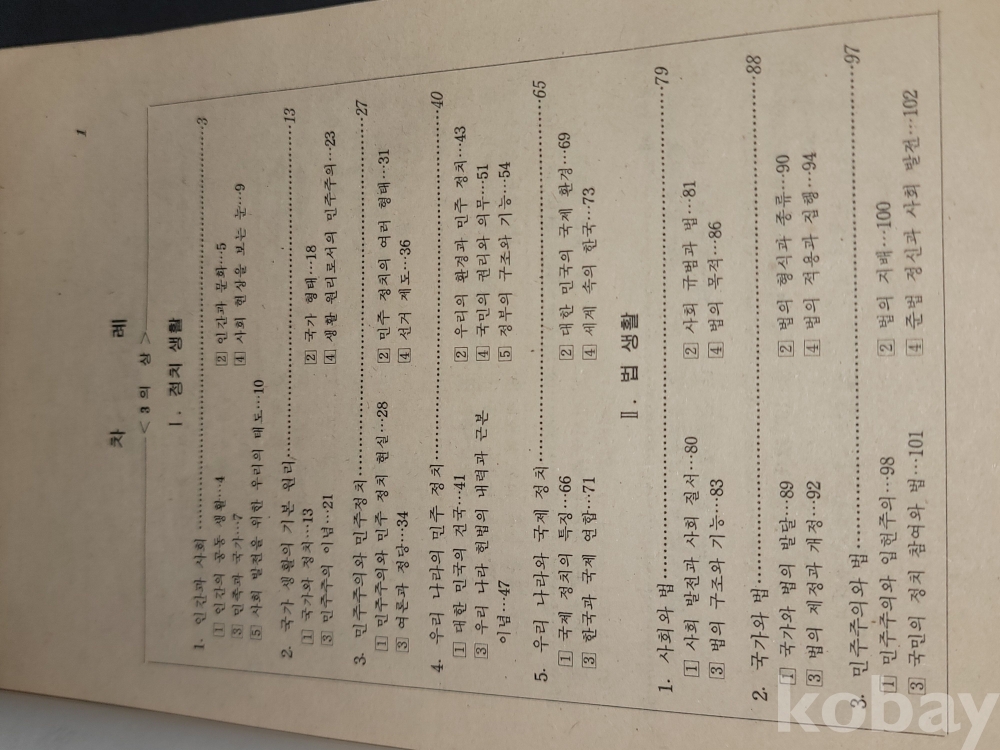 1
차 례
< 3 의 상 >
Ⅰ. 정치 생활
1. 인간과 사회 ……………………………………3
1 인간의 공동 생활…4 2 인간과 문화…5
3 민족과 국가…7 4 사회 현상을 보는 눈…9
5 사회 발전을 위한 우리의 태도…10
2. 국가 생활의 기본 원리……………………………………13
1 국가와 정치…13 2 국가 형태…18
3 민주주의 이념…21 4 생활 원리로서의 민주주의…23
3. 민주주의와 민주정치……………………………………27
1 민주주의와 민주 정치 현실…28 2 민주 정치의 여러 형태…31
3 여론과 정당…34 4 선거 제도…36
4. 우리 나라의 민주 정치……………………………………40
1 대한 민국의 건국…41 2 우리의 환경과 민주 정치…43
3 우리 나라 헌법의 내력과 근본 4 국민의 권리와 의무…51
이념…47 5 정부의 구조와 기능…54
5. 우리 나라와 국제 정치……………………………………65
1 국제 정치의 특징…66 2 대한 민국의 국제 환경…69
3 한국과 국제 연합…71 4 세계 속의 한국…73
Ⅱ. 법 생활
1. 사회와 법……………………………………79
1 사회 발전과 사회 질서…80 2 사회 규범과 법…81
3 법의 구조와 기능…83 4 법의 목적…86
2. 국가와 법……………………………………88
1 국가와 법의 발달…89 2 법의 형식과 종류…90
3 법의 제정과 개정…92 4 법의 적용과 집행…94
3. 민주주의와 법……………………………………97
1 민주주의와 입헌주의…98 2 법의 지배…100
3 국민의 정치 참여와 법…101 4 준법 정신과 사회 발전…102
kobay